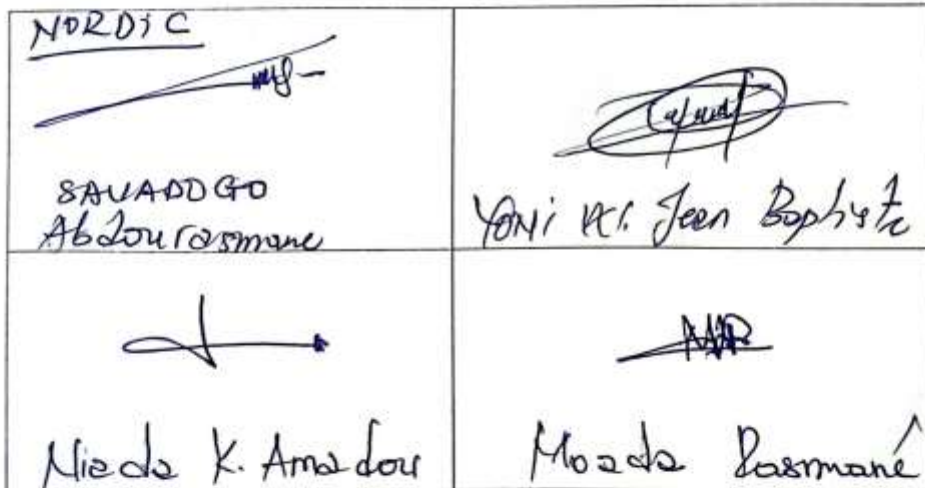 NORDIC
SAWADOGO
Abdourasmane
Yoni K. Jean Baptiste
Niada K. Amadou
Moada Rasmané